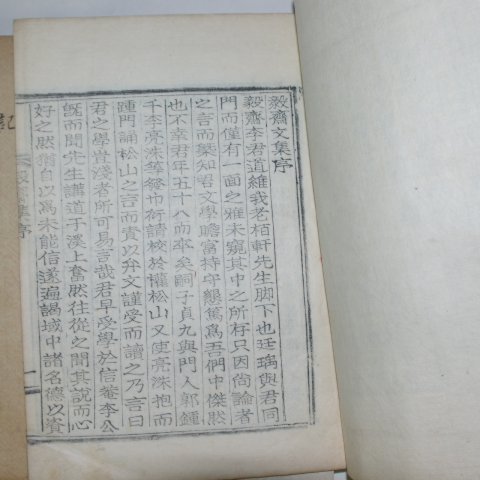 毅齋文集序
毅齋李君道維我老栢軒先生脚下也廷瑀與君同
門而僅有一面之雅未窺其中之所存只因尚論者
之言而槩知君文學贍富持守懇篤爲吾們中傑然
也不幸君年五十八而卒矣嗣子貞九與門人郭鍾
千李亮洙等發巾衍請校於權松山又使亮洙抱而
踵門誦松山之言而責以弁文謹受而讀之乃言曰
君之學豈淺者所可易言哉君早受學於信菴李公
旣而聞先生講道于溪上奮然往從之聞其說而心
好之然猶自以爲未能信遂遍謁域中諸名德以資
集序
一
記